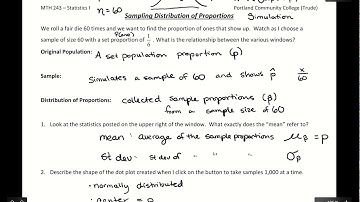 MTH 243 – Statistics I
n = 60
Portland Community College (Trude)
Simulation
Sampling Distribution of Proportions
We roll a fair die 60 times and we want to find the proportion of ones that show up. Watch as I choose a
P(one)
sample of size 60 with a set proportion of 1/6. What is the relationship between the various windows?
Original Population:
A set population proportion (p)
Sample:
Simulates a sample of 60 and shows p̂ x/60
Distribution of Proportions:
collected sample proportions (p̂)
from a sample size of 60
1. Look at the statistics posted on the upper right of the window. What exactly does the "mean" refer to?
mean: average of the sample proportions μp̂ = p
St dev: St dev of " " " σp̂
2. Describe the shape of the dot plot created when I click on the button to take samples 1,000 at a time.
• normally distributed
• center = p